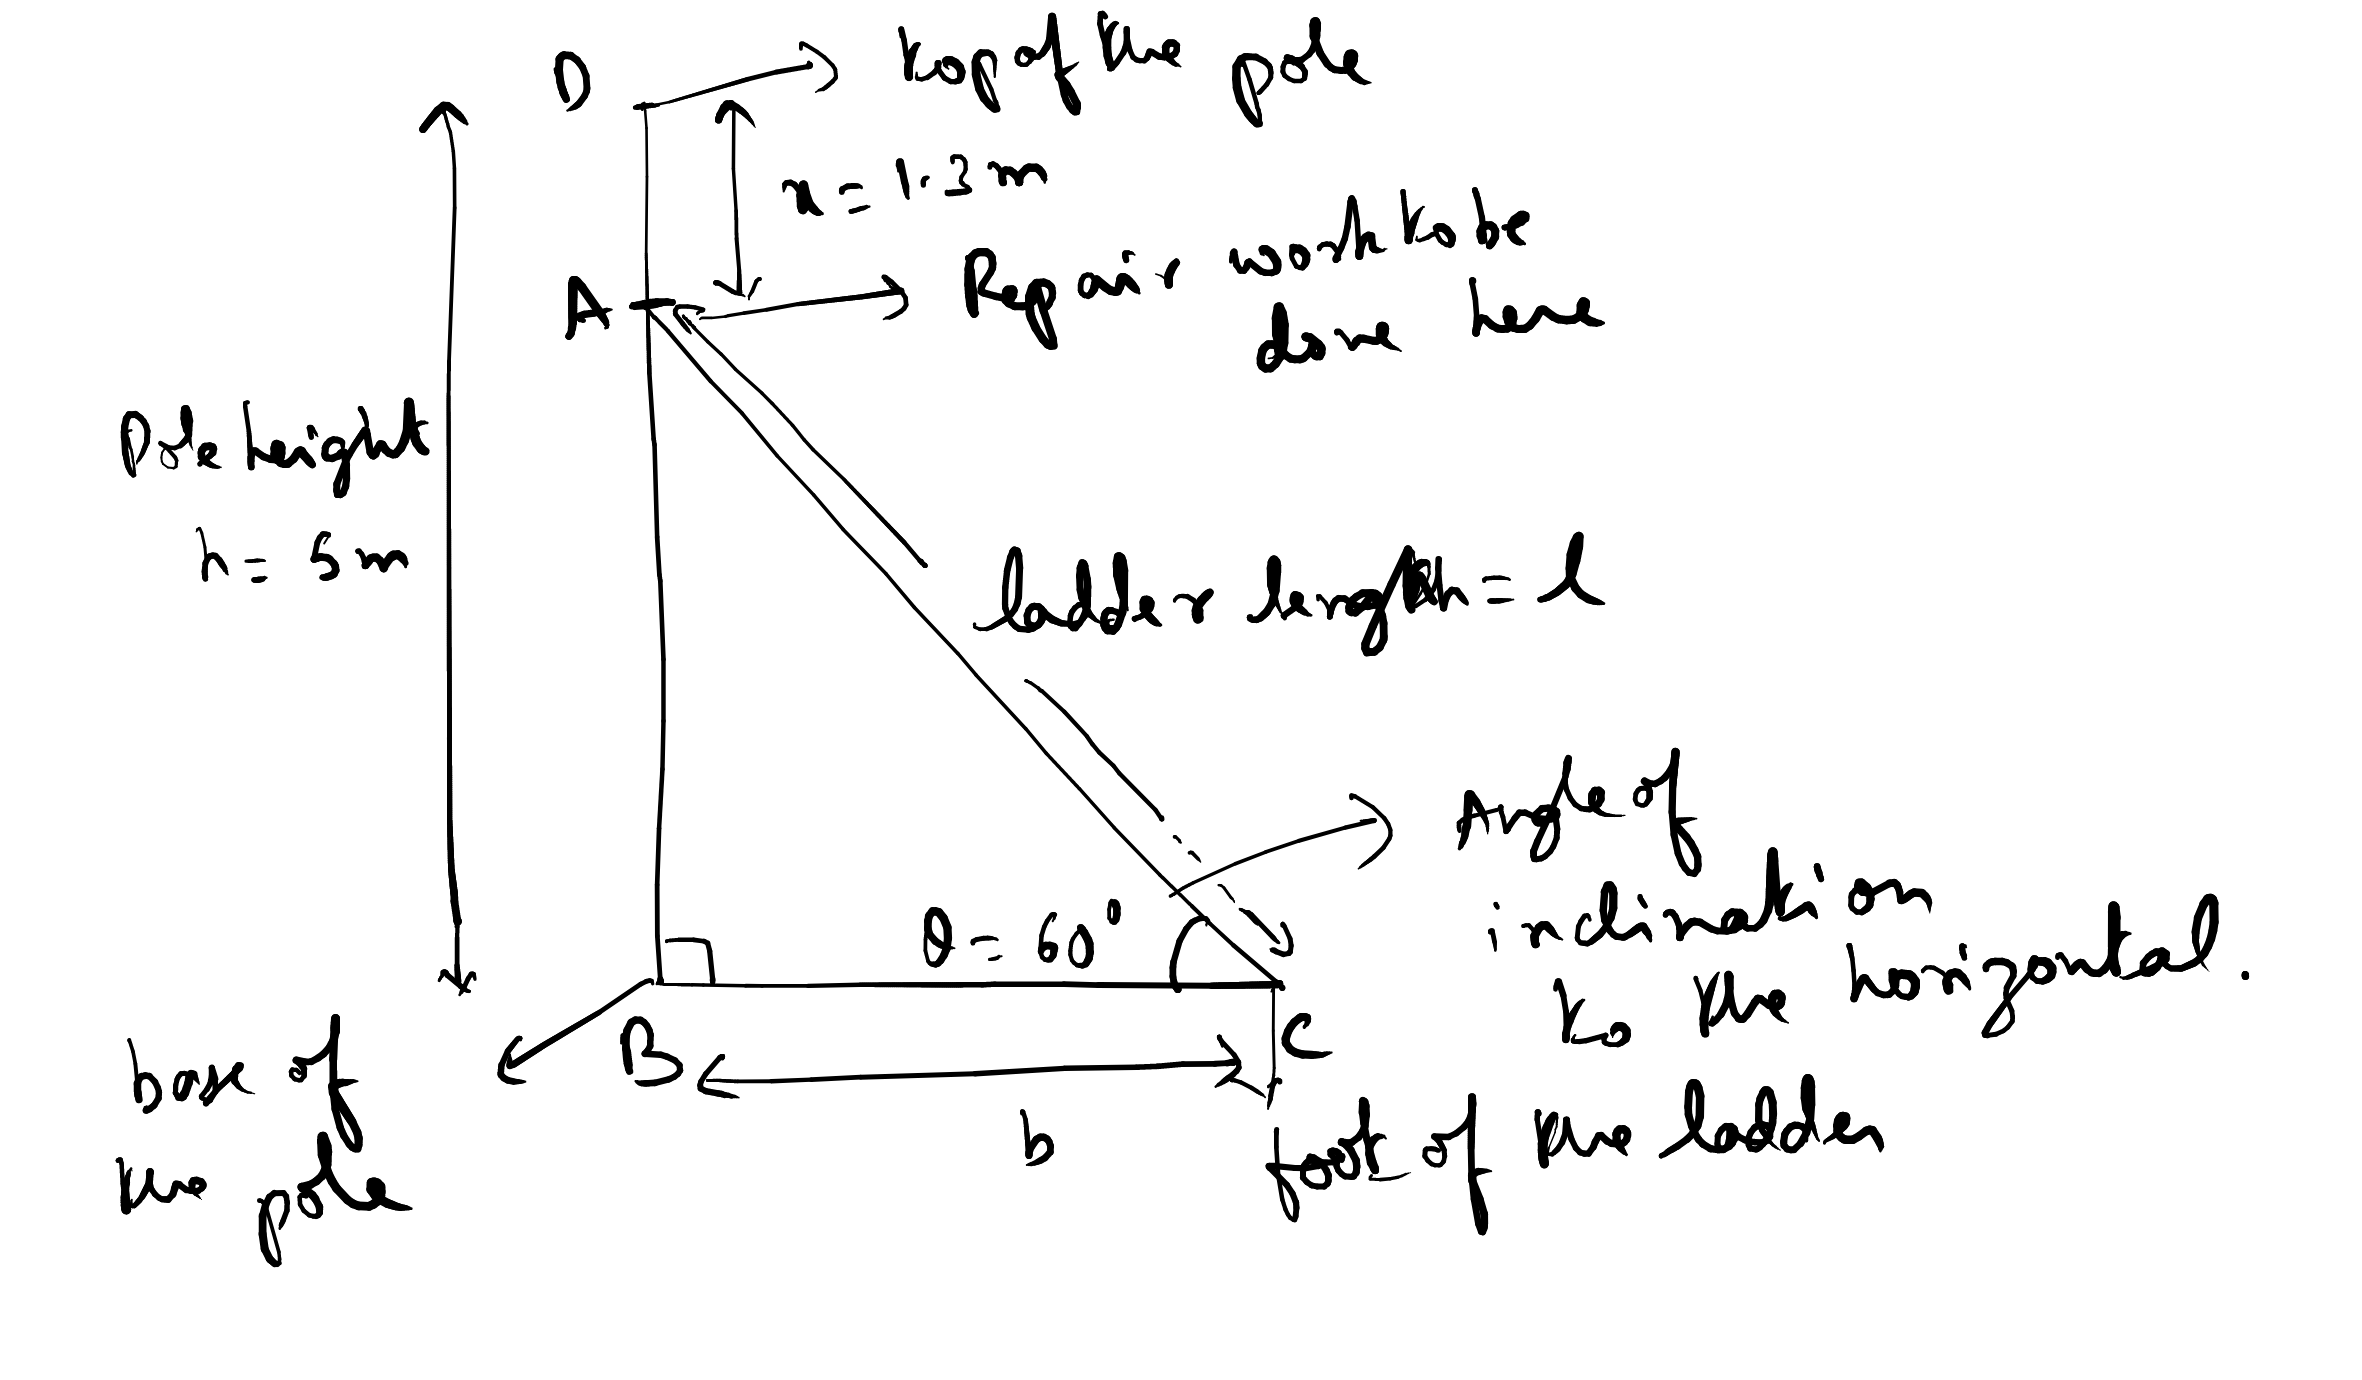 D
top of the pole
x = 1.3 m
A
Repair work to be
done here
Pole height
h = 5m
ladder length = l
Angle of
inclination
to the horizontal.
θ = 60°
B
C
base of
the pole
b
foot of the ladder